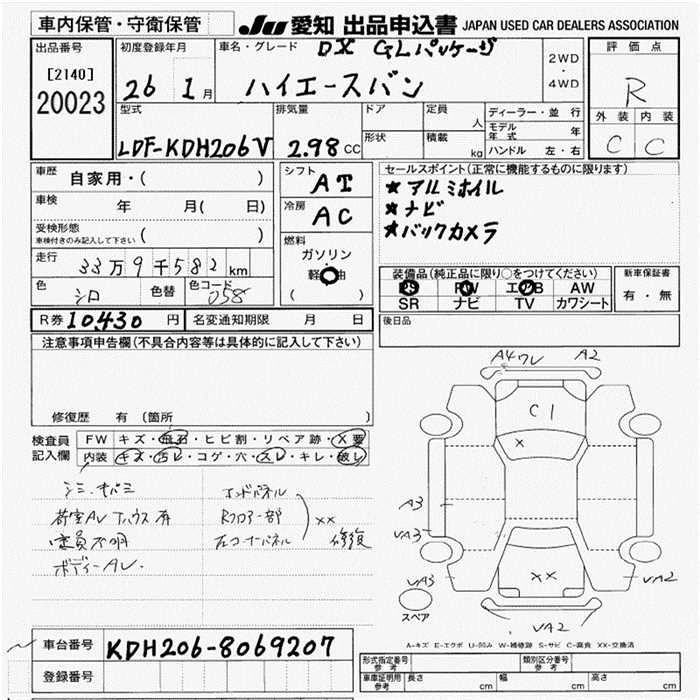 車内保管・守衛保管 JU 愛知 出品申込書 JAPAN USED CAR DEALERS ASSOCIATION
出品番号
[2140]
20023
初度登録年月
26 1月
車名・グレード DX GLパッケージ
ハイエースバン
2WD
・
4WD
評価点
R
外装 内装
C C
型式
LDF-KDH206V
排気量
2.98 CC
ドア
形状
定員
人
積載
kg
ディーラー・並行
モデル年式 年
ハンドル 左・右
車歴 自家用・( )
車検 年 月( 日)
受検形態
車検付きのみ記入して下さい ( )
走行 33万9千582km
色 シロ 色替 色コード 058
シフト
AT
冷房
AC
燃料
ガソリン
軽油
( )
セールスポイント(正常に機能するものに限ります)
★アルミホイル
★ナビ
★バックカメラ
装備品(純正品に限り○をつけてください)
PS PW エアB AW
SR ナビ TV カワシート
新車保証書
有・無
R券 10430 円 名変通知期限 月 日
後日品
注意事項申告欄(不具合内容等は具体的に記入して下さい)
修復歴 有 (箇所 )
検査員
記入欄
FW キズ・飛石・ヒビ割・リペア跡・X要
内装 キズ・汚レ・コゲ・穴・スレ・キレ・破レ
荷室AV Tハウス有
定員不明
ボディーAV.
エンドパネル
Rフロアー部
左コーナーパネル
××
修復
A4 ワレ A2
C1
×
A3
VA3
VA3
××
VA2
VA2
スペア
A-キズ E-エクボ U-凹み W-補修跡 S-サビ C-腐食 XX-交換済
車台番号 KDH206-8069207
登録番号
形式指定番号
参考
類別区分番号
参考
車庫証明用
参考
長さ cm 幅 cm 高さ cm